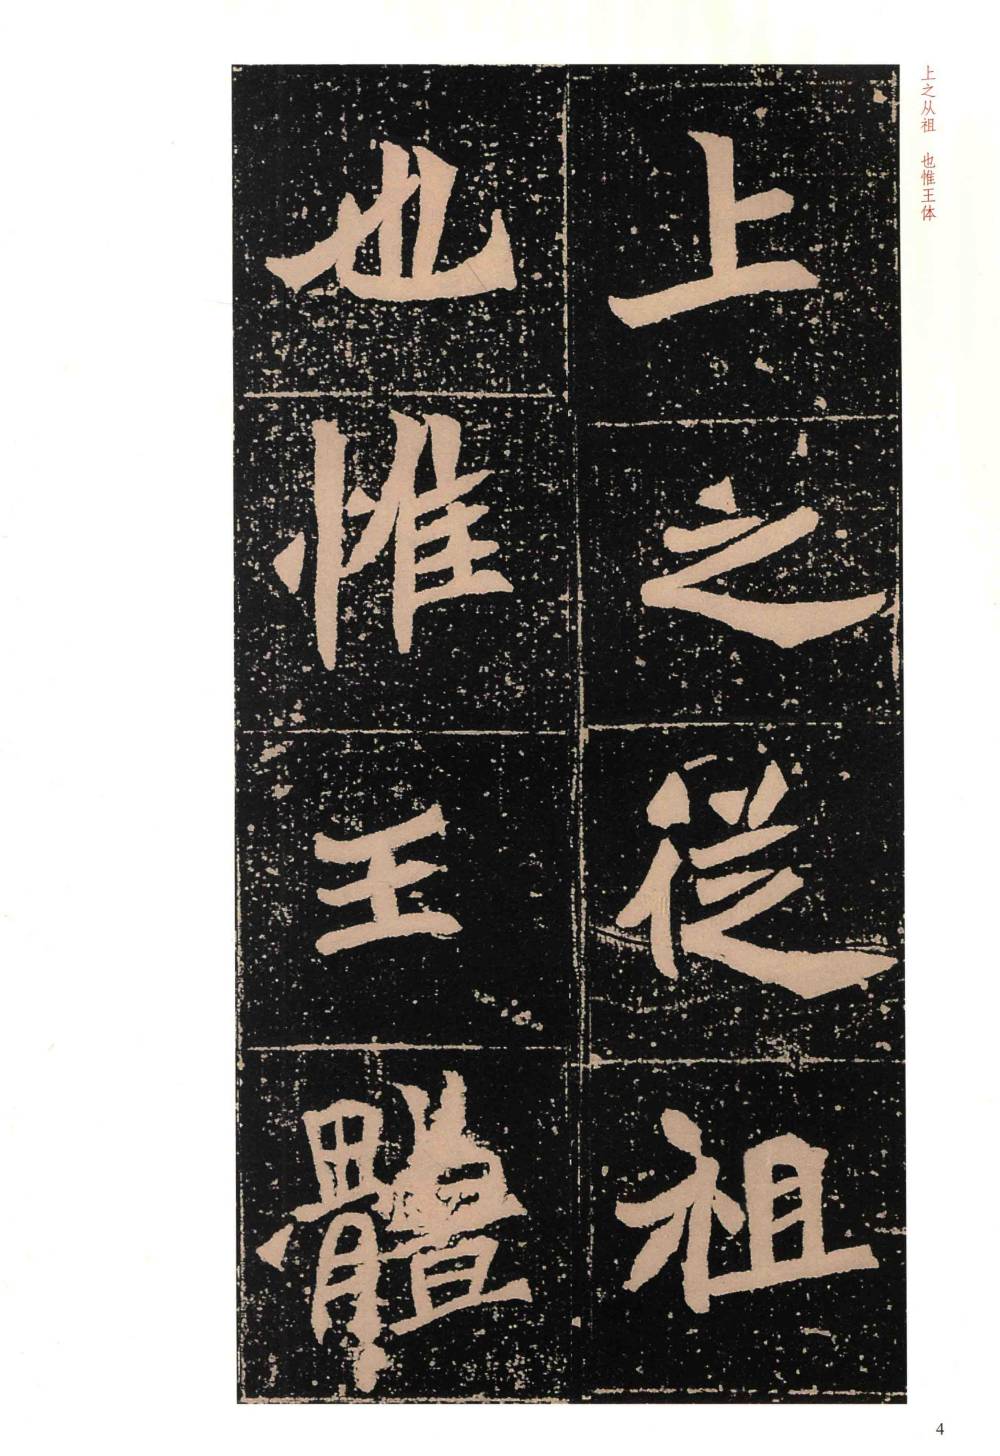 上之從祖
也惟王體
上之从祖 也惟王体
4